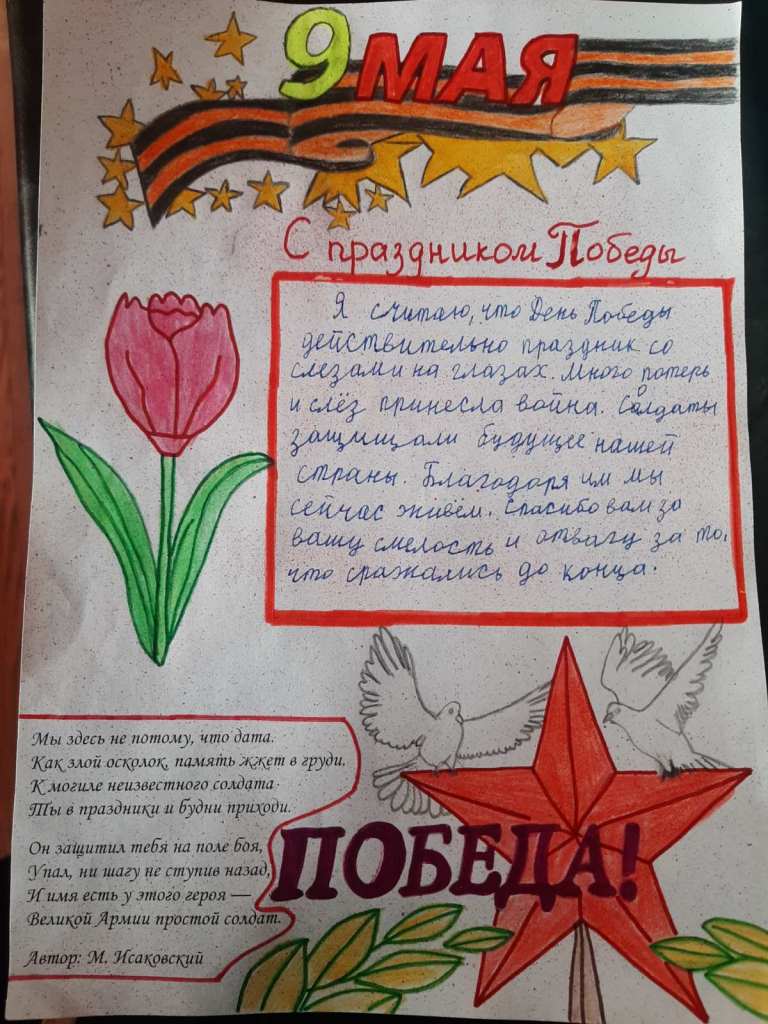 9 МАЯ
С праздником Победы
Я считаю, что День Победы
действительно праздник со
слезами на глазах. Много потерь
и слёз принесла война. Солдаты
защищали будущее нашей
страны. Благодаря им мы
сейчас живём. Спасибо вам за
вашу смелость и отвагу за то,
что сражались до конца.
Мы здесь не потому, что дата.
Как злой осколок, память жжет в груди.
К могиле неизвестного солдата
Ты в праздники и будни приходи.
Он защитил тебя на поле боя,
Упал, ни шагу не ступив назад,
И имя есть у этого героя —
Великой Армии простой солдат.
Автор: М. Исаковский
ПОБЕДА!